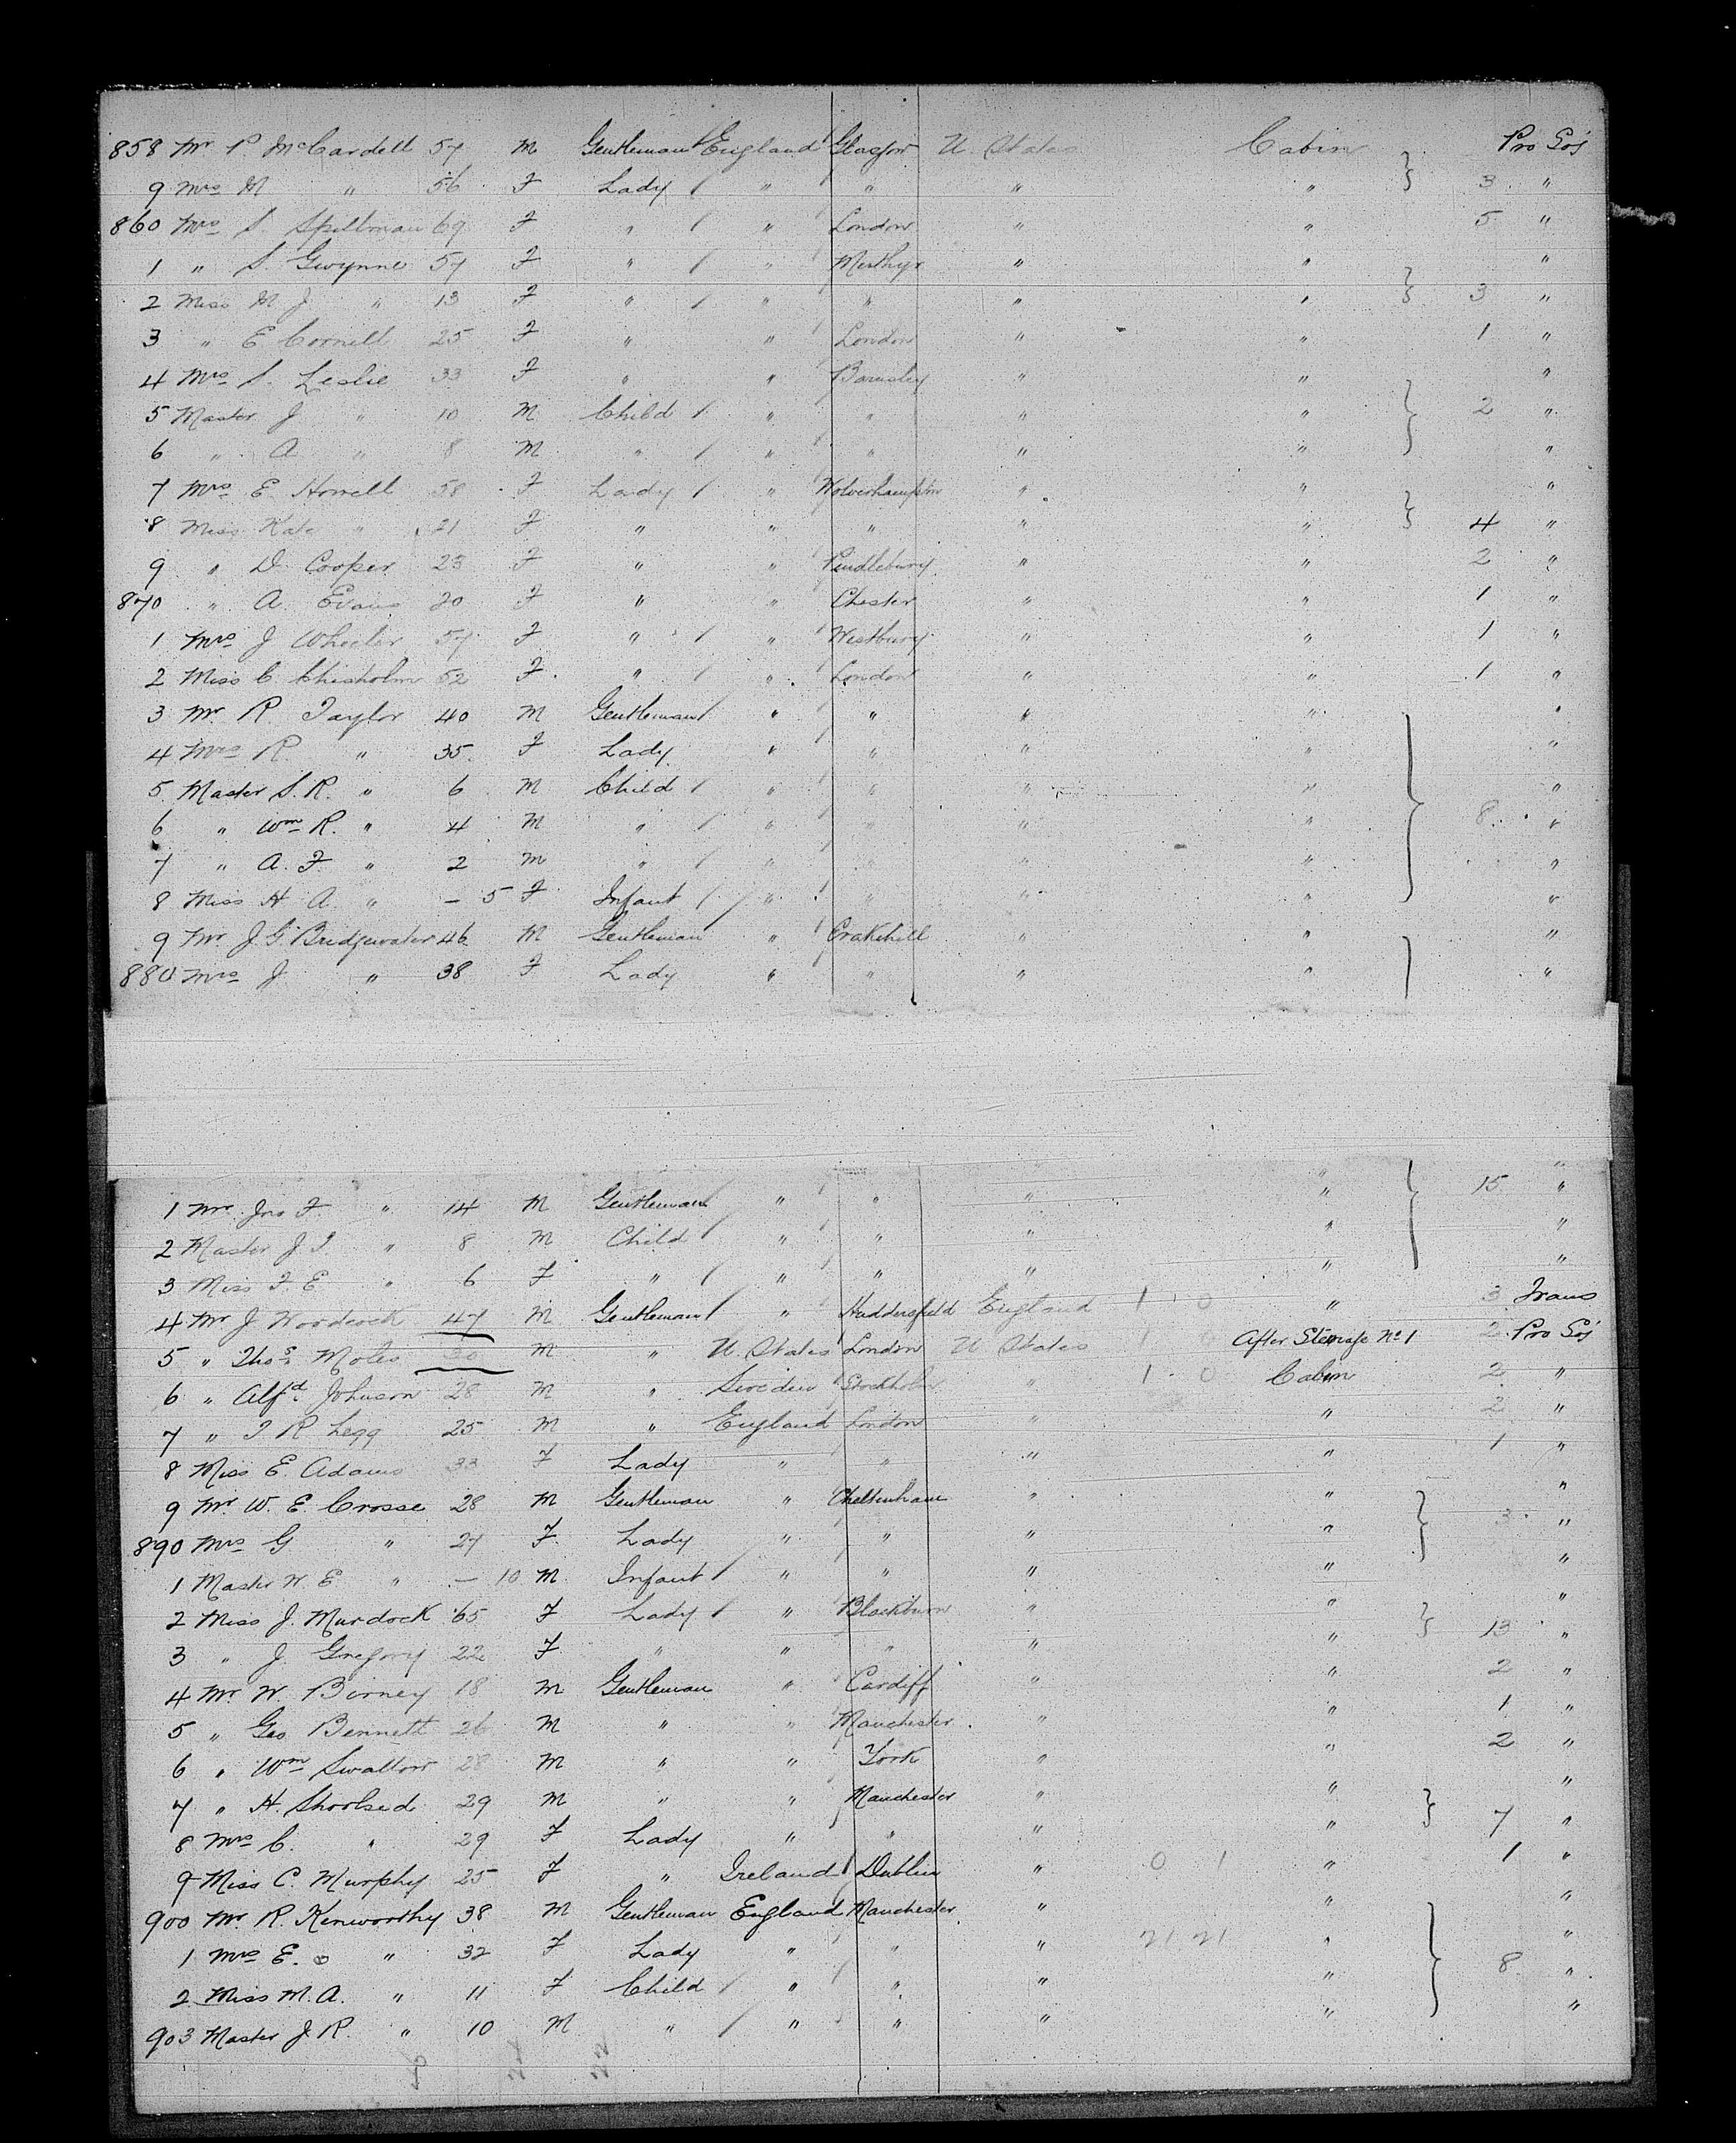 858 Mr P. McCardell 57 M Gentleman England Glasgow U. States Cabin Pro Soj
9 Mrs M " 56 F Lady " " " " 3 "
860 Mrs S. Spillman 69 F " " London " " 5 "
1 " S. Gwynne 57 F " " Merthyr " " "
2 Miss M J " 13 F " " " " " 3 "
3 " E Cornell 25 F " " London " " 1 "
4 Mrs S. Leslie 33 F " " Barnsley " " "
5 Master J " 10 M Child " " " " 2 "
6 " A " 8 M " " " " " "
7 Mrs E Howell 58 F Lady " Wolverhampton " " "
8 Miss Kate " 21 F " " " " " 4 "
9 " D. Cooper 23 F " " Pendlebury " " 2 "
870 " A. Evans 20 F " " Chester " " 1 "
1 Mrs J Wheeler 57 F " " Westbury " " 1 "
2 Miss C. Chisholm 52 F " " London " " 1 "
3 Mr R. Taylor 40 M Gentleman " " " " "
4 Mrs R. " 35 F Lady " " " " "
5 Master S. R. " 6 M Child " " " " "
6 " Wm R. " 4 M " " " " " 8 "
7 " A. F " 2 M " " " " " "
8 Miss H A. " – 5 F Infant " " " " "
9 Mr J. G. Bridgewater 46 M Gentleman " Crakehill " " "
880 Mrs J " 38 F Lady " " " " "
1 Mr Jno F " 14 M Gentleman " " " " 15 "
2 Master J. T. " 8 M Child " " " " "
3 Miss F. E " 6 F " " " " " "
4 Mr J Woodcock 47 M Gentleman " Huddersfield England 1 0 " 3 Trans
5 " Thos Moles 30 M " U. States London U States 1 0 After Steerage No 1 2 Pro Soj
6 " Alfd Johnson 28 M " Sweden Stockholm " 1 0 Cabin 2 "
7 " T R Legg 25 M " England London " " 2 "
8 Miss E. Adams 33 F Lady " " " " 1 "
9 Mr W. E. Crosse 28 M Gentleman " Cheltenham " " "
890 Mrs G " 27 F Lady " " " " 3 "
1 Master W. E " – 10 M Infant " " " " "
2 Miss J. Murdock 65 F Lady " Blackburn " " "
3 " J. Gregory 22 F " " " " " 13 "
4 Mr W. Birney 18 M Gentleman " Cardiff " " 2 "
5 " Geo Bennett 26 M " " Manchester " " 1 "
6 " Wm Swallow 28 M " " York " " 2 "
7 " H. Shoolsed 29 M " " Manchester " " "
8 Mrs C. " 29 F Lady " " " " 7 "
9 Miss C. Murphy 25 F " Ireland Dublin " 0 1 " 1 "
900 Mr R. Kenworthy 38 M Gentleman England Manchester " " "
1 Mrs E. " 32 F Lady " " " 21 21 " "
2 Miss M. A. " 11 F Child " " " " 8 "
903 Master J. R. " 10 M " " " " " "